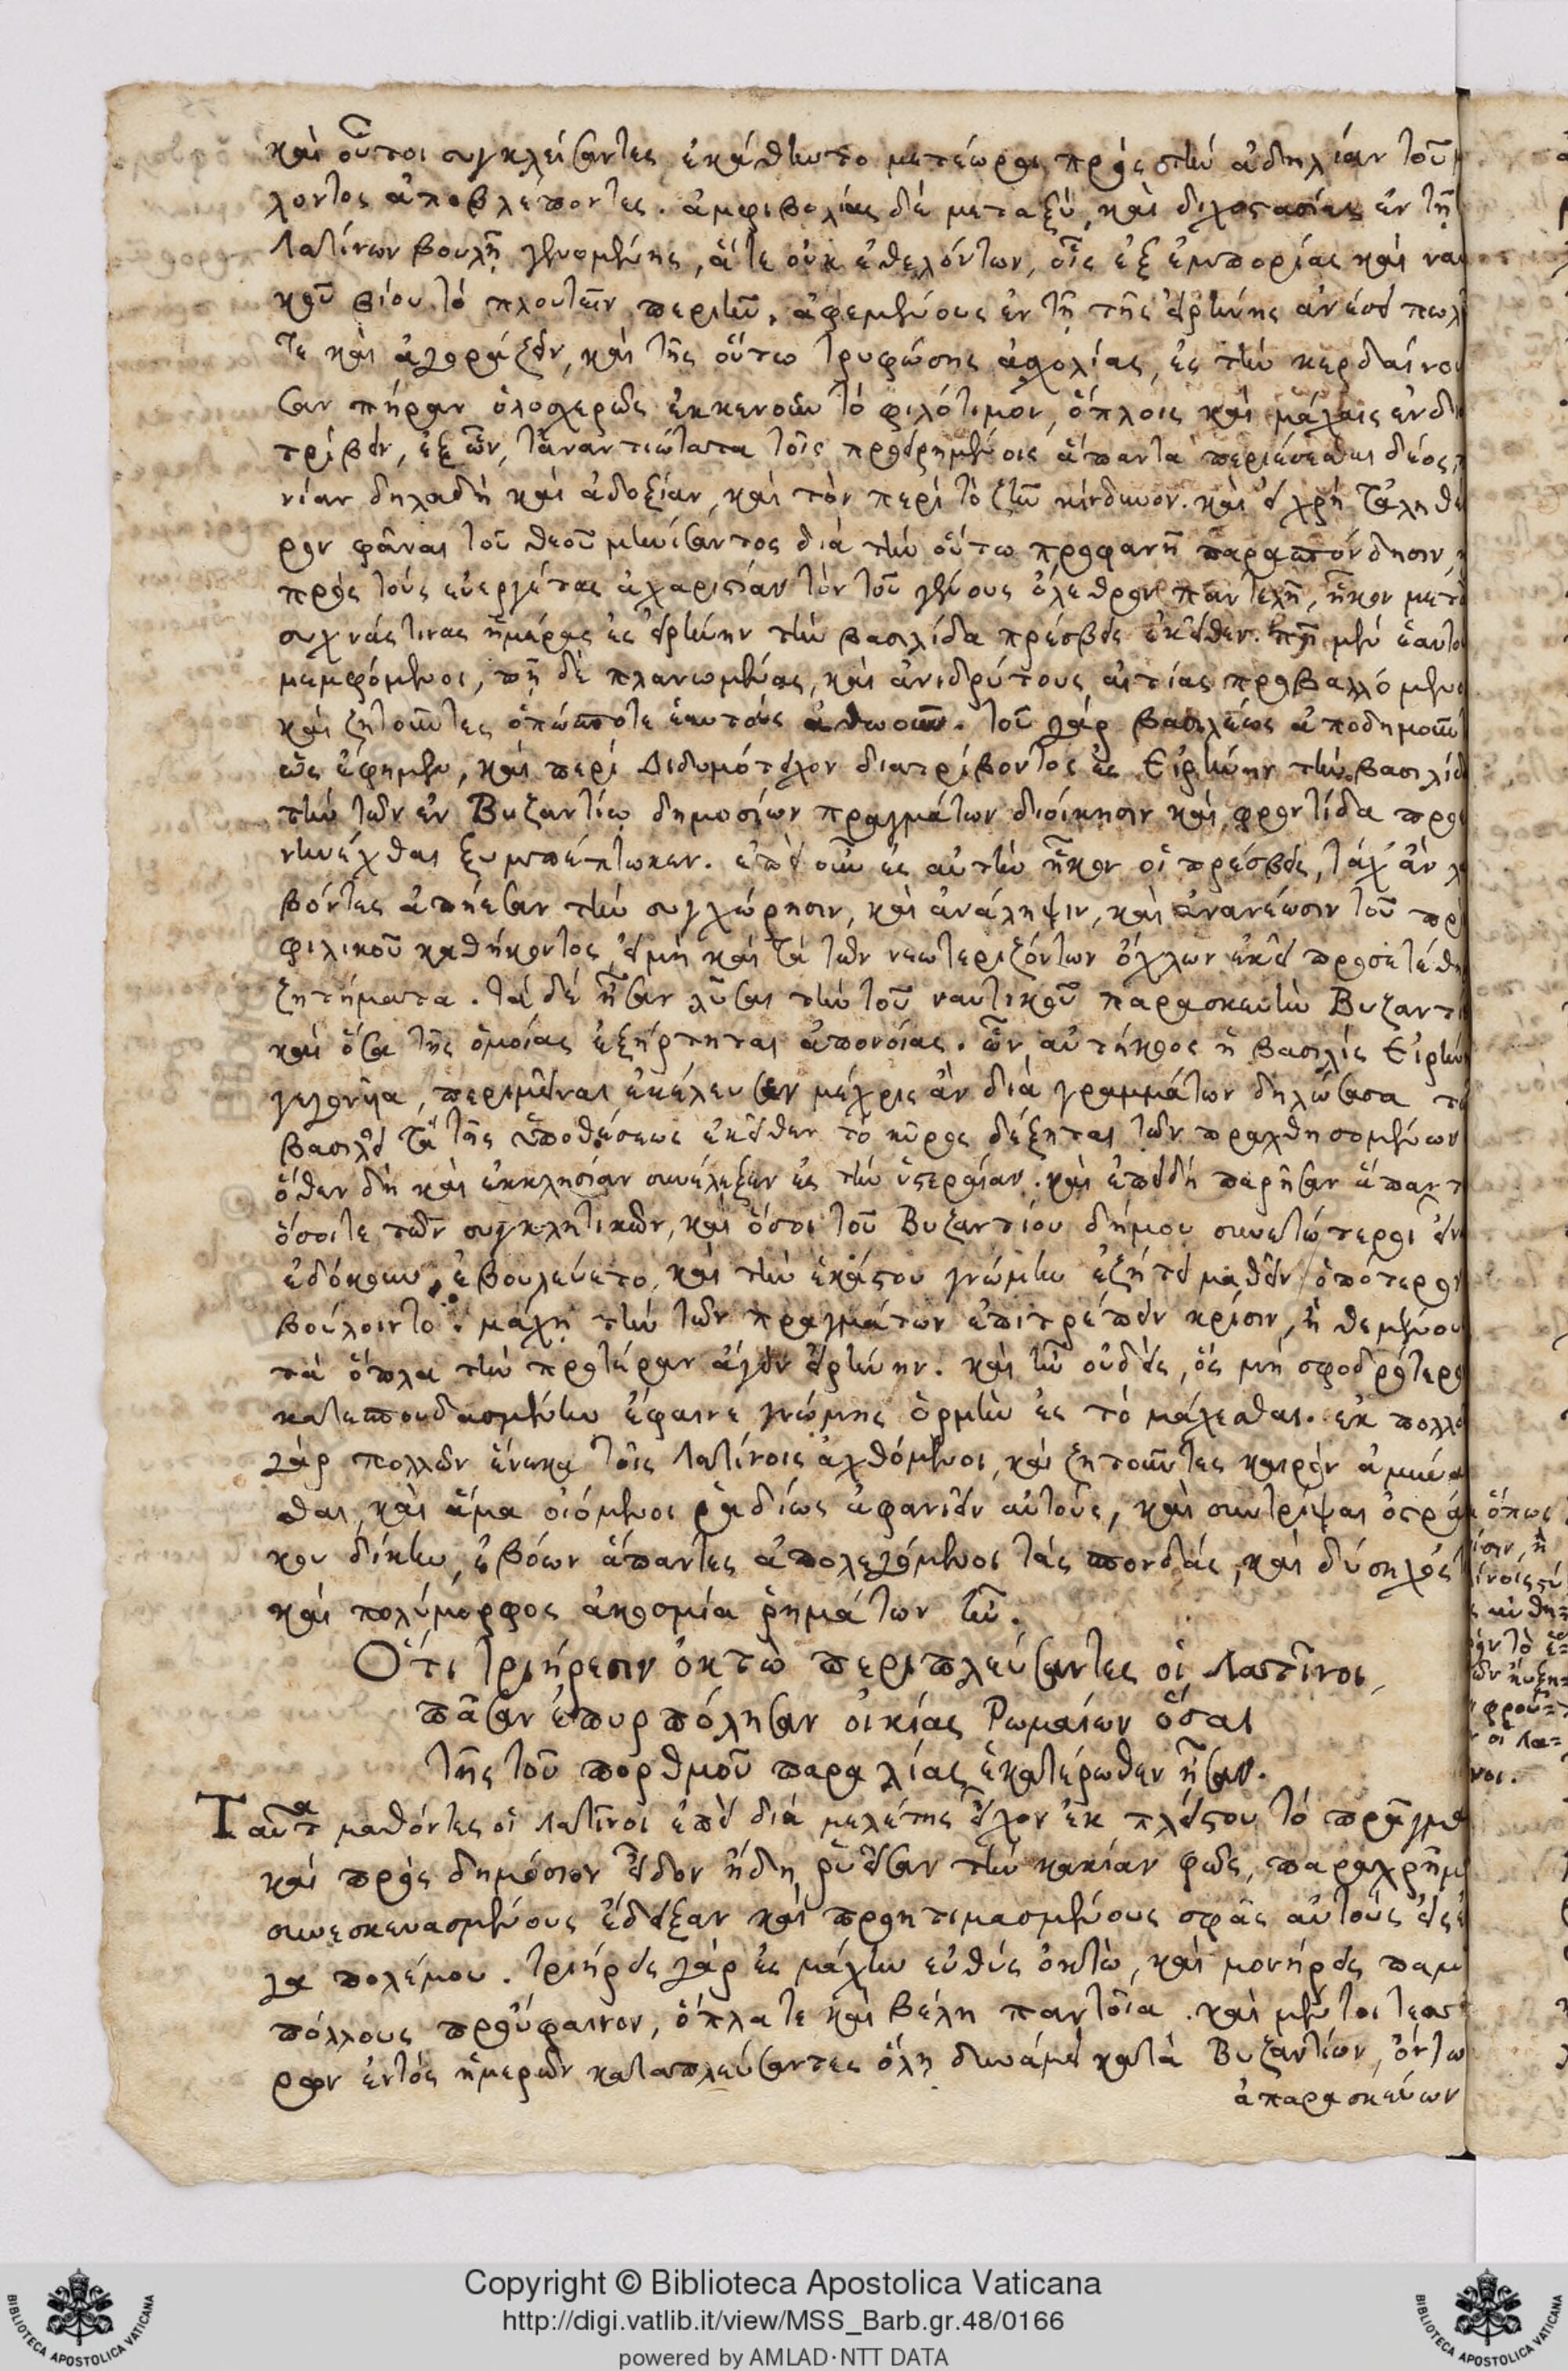 καὶ οὗτοι συγκλείσαντες ἐκάθηντο μετέωροι πρὸς τὴν ἀδηλίαν τοῦ
λοντος ἀποβλέποντες. ἀμφιβολίας δὲ μεταξὺ, καὶ διχοστασίας ἐν τῇ
Λατίνων βουλῇ γενομένης, ἅτε οὐκ ἐθελόντων, οἷς ἐξ ἐμπορίας καὶ ναυ
κοῦ βίου τὸ πλουτεῖν περιῆν, ἀφεμένους ἐν τῇ τῆς εἰρήνης ἀνέσει πωλ
τε καὶ ἀγοράζειν, καὶ τῆς οὕτω τρυφώσης ἀσχολίας, ἐς τὴν κερδαίνου
σαν πήραν ὁλοσχερῶς ἐκκενοῦν τὸ φιλότιμον, ὅπλοις καὶ μάχαις ἐνδι
τρίβειν, ἐξ ὧν, τἀναντιώτατα τοῖς προειρημένοις ἅπαντα περιέσεσθαι δέος,
νίαν δηλαδὴ καὶ ἀδοξίαν, καὶ τὸν περὶ τὸ ζῆν κίνδυνον. καὶ εἰ χρὴ τἀληθέ
ρον φάναι τοῦ θεοῦ μηνίσαντος διὰ τὴν οὕτω προφανῆ παρασπόνδησιν,
πρὸς τοὺς εὐεργέτας ἀχαριστίαν τὸν τοῦ γένους ὄλεθρον παντελῆ, ἧκον μετὰ
συχνάς τινας ἡμέρας ἐς εἰρήνην τὴν βασιλίδα πρέσβεις ἐκεῖθεν. πῇ μὲν ἑαυτοὺ
μεμφόμενοι, πῇ δὲ πλανωμένας, καὶ ἀνιδρύτους αἰτίας προβαλλόμενοι
καὶ ζητοῦντες ὁπώσποτε ἑαυτοὺς ἀθωοῦν. τοῦ γὰρ βασιλέως ἀποδημοῦν
ὡς ἔφημεν, καὶ περὶ Διδυμότειχον διατρίβοντος ἐς Εἰρήνην τὴν βασιλίδ
τὴν τῶν ἐν Βυζαντίῳ δημοσίων πραγμάτων διοίκησιν καὶ φροντίδα προ
νηνέχθαι ξυμπέπτωκεν. ἐπεὶ οὖν ἐς αὐτὴν ἧκον οἱ πρέσβεις, τάχ' ἂν λα
βόντες ἀπῄεσαν τὴν συγχώρησιν, καὶ ἀνάληψιν, καὶ ἀνανέωσιν τοῦ πρὶ
φιλικοῦ καθήκοντος, εἰ μὴ καὶ τὰ τῶν νεωτεριζόντων ὄχλων ἐκεῖ προσετέθη
ζητήματα. τὰ δὲ ἦσαν λῦσαι τὴν τοῦ ναυτικοῦ παρασκευὴν Βυζαντί
καὶ ὅσα τῆς ὁμοίας ἐξήρτηται ἀπονοίας. ὧν αὐτήκοος ἡ βασιλὶς Εἰρήν
γεγονυῖα, περιμεῖναι ἐκέλευσεν μέχρις ἂν διὰ γραμμάτων δηλώσασα τῷ
βασιλεῖ τὰ τῆς ὑποθέσεως ἐκεῖθεν τὸ κῦρος δέξηται τῶν πραχθησομένων
ὅθεν δὴ καὶ ἐκκλησίαν συνέλεξεν ἐς τὴν ὑστεραίαν. καὶ ἐπειδὴ παρῆσαν ἅπαντ
ὅσοι τε τῶν συγκλητικῶν, καὶ ὅσοι τοῦ Βυζαντίου δήμου συνετώτεροι εἶν
ἐδόκουν, ἐβουλεύετο, καὶ τὴν ἑκάστου γνώμην ἐξῄτει μαθεῖν ὁπότερον
βούλοιντο. μάχῃ τὴν τῶν πραγμάτων ἐπιτρέπειν κρίσιν, ἢ θεμένου
τὰ ὅπλα τὴν προτέραν ἄγειν εἰρήνην. καὶ ἦν οὐδεὶς, ὃς μὴ σφοδρότερο
κατεσπουδασμένην ἔφαινε γνώμης ὁρμὴν ἐς τὸ μάχεσθαι. ἐκ πολλο
γὰρ πολλῶν ἕνεκα τοῖς Λατίνοις ἀχθόμενοι, καὶ ζητοῦντες καιρὸν ἀμύνα
σθαι, καὶ ἅμα οἰόμενοι ῥᾳδίως ἀφανιεῖν αὐτοὺς, καὶ συντρίψαι ὀστρά
κου δίκην, ἐβόων ἅπαντες ἀπολεγόμενοι τὰς σπονδὰς, καὶ δύσηχός τ
καὶ πολύμορφος ἀκοσμία ῥημάτων ἦν.
Ὅτι τριήρεσιν ὀκτὼ περιπλεύσαντες οἱ Λατῖνοι,
πᾶσαν ἐπυρπόλησαν οἰκίας Ῥωμαίων ὅσαι
τῆς τοῦ πορθμοῦ παραλίας ἑκατέρωθεν ἦσαν.
Ταῦτα μαθόντες οἱ Λατῖνοι ἐπεὶ διὰ μελέτης εἶχον ἐκ πλείστου τὸ πρᾶγμα
καὶ πρὸς δημόσιον εἶδον ἤδη ῥυεῖσαν τὴν κακίαν φῶς, παραχρῆμα
συνεσκευασμένους ἔδειξαν καὶ προητιμασμένους σφᾶς αὐτοὺς ἐς ἔ
γα πολέμου. τριήρεις γὰρ ἐς μάχην εὐθὺς ὀκτὼ, καὶ μονήρεις παμ
πόλλους προύφαινον, ὅπλα τε καὶ βέλη παντοῖα. καὶ μέντοι τεσσ
ρων ἐντὸς ἡμερῶν καταπλεύσαντες ὅλῃ δυνάμει κατὰ Βυζαντίων, ὄντω
ἀπαρασκεύων
ὅπως
Copyright © Biblioteca Apostolica Vaticana
http://digi.vatlib.it/view/MSS_Barb.gr.48/0166
powered by AMLAD·NTT DATA
BIBLIOTECA APOSTOLICA VATICANA
BIBLIOTECA APOSTOLICA VATICANA